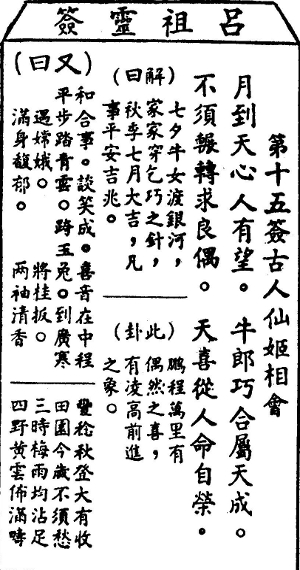 呂祖靈簽
第十五簽古人仙姬相會
月到天心人有望。牛郎巧合屬天成。
不須輾轉求良偶。天喜從人命自榮。
(解曰)
七夕牛女渡銀河，
家家穿乞巧之針，
秋季七月大吉，凡
事平安吉兆。
(此卦)
鵬程萬里有
偶然之喜，
有凌高前進
之象。
(又曰)
和合事。談笑成。喜音在中程
平步踏青雲。跨玉兔。到廣寒
遇嫦娥。將桂扳。
滿身馥郁。兩袖清香
豐稔秋登大有收
田園今歲不須愁
三時梅雨均沾足
四野黃雲佈滿疇